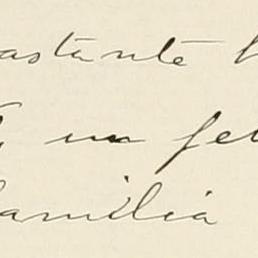 bastante
un fel
familia